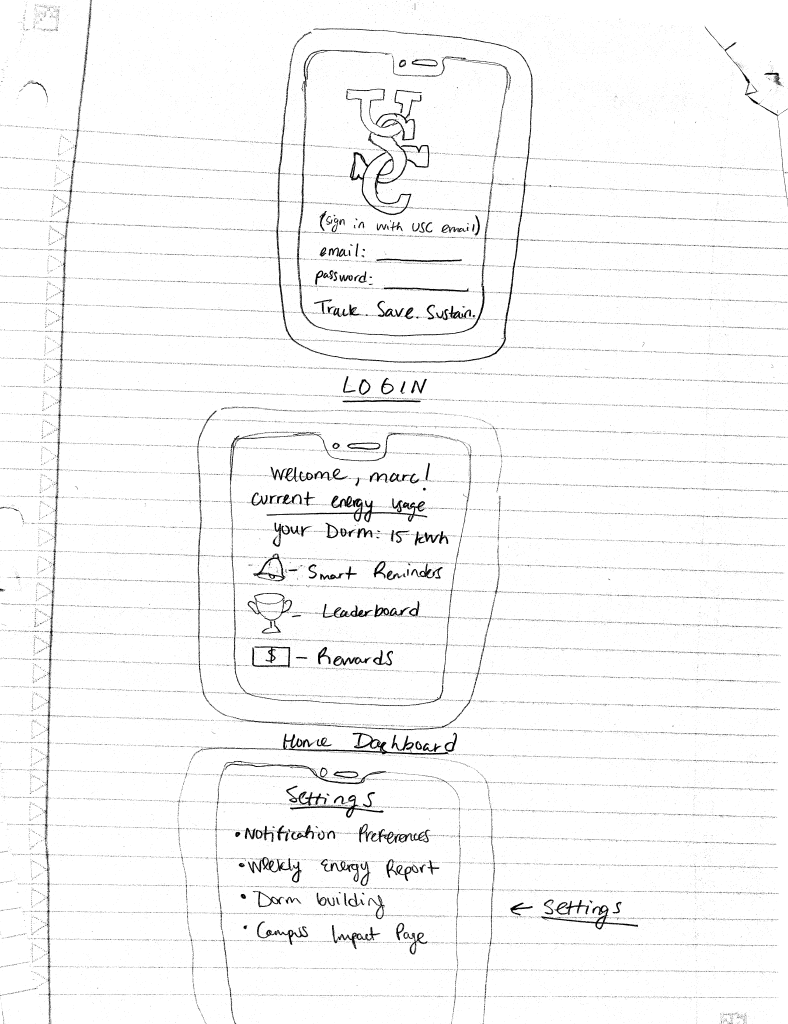 USC
(sign in with USC email)
email:
password:
Track. Save. Sustain.
LOGIN
Welcome, marc!
Current energy usage
your Dorm: 15 kWh
- Smart Reminders
- Leaderboard
$ - Rewards
Home Dashboard
Settings
• Notification Preferences
• Weekly Energy Report
• Dorm building
• Campus Impact Page
← Settings